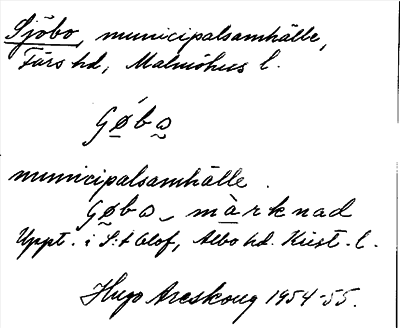 Sjöbo, municipalsamhälle,
Färs hd, Malmöhus l.
Gǿbo
municipalsamhälle.
Gøbo, màrknad
Uppt. i S:t Olof, Albo hd. Krist. l.
Hugo Areskoug 1954-55.